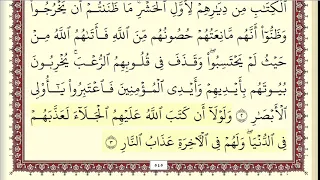 ٱلۡكِتَٰبِ مِن دِيَٰرِهِمۡ لِأَوَّلِ ٱلۡحَشۡرِۚ مَا ظَنَنتُمۡ أَن يَخۡرُجُواْۖ
وَظَنُّوٓاْ أَنَّهُم مَّانِعَتُهُمۡ حُصُونُهُم مِّنَ ٱللَّهِ فَأَتَىٰهُمُ ٱللَّهُ مِنۡ
حَيۡثُ لَمۡ يَحۡتَسِبُواْۖ وَقَذَفَ فِي قُلُوبِهِمُ ٱلرُّعۡبَۚ يُخۡرِبُونَ
بُيُوتَهُم بِأَيۡدِيهِمۡ وَأَيۡدِي ٱلۡمُؤۡمِنِينَ فَٱعۡتَبِرُواْ يَٰٓأُوْلِي
ٱلۡأَبۡصَٰرِ ٢ وَلَوۡلَآ أَن كَتَبَ ٱللَّهُ عَلَيۡهِمُ ٱلۡجَلَآءَ لَعَذَّبَهُمۡ
فِي ٱلدُّنۡيَاۖ وَلَهُمۡ فِي ٱلۡأٓخِرَةِ عَذَابُ ٱلنَّارِ ٣